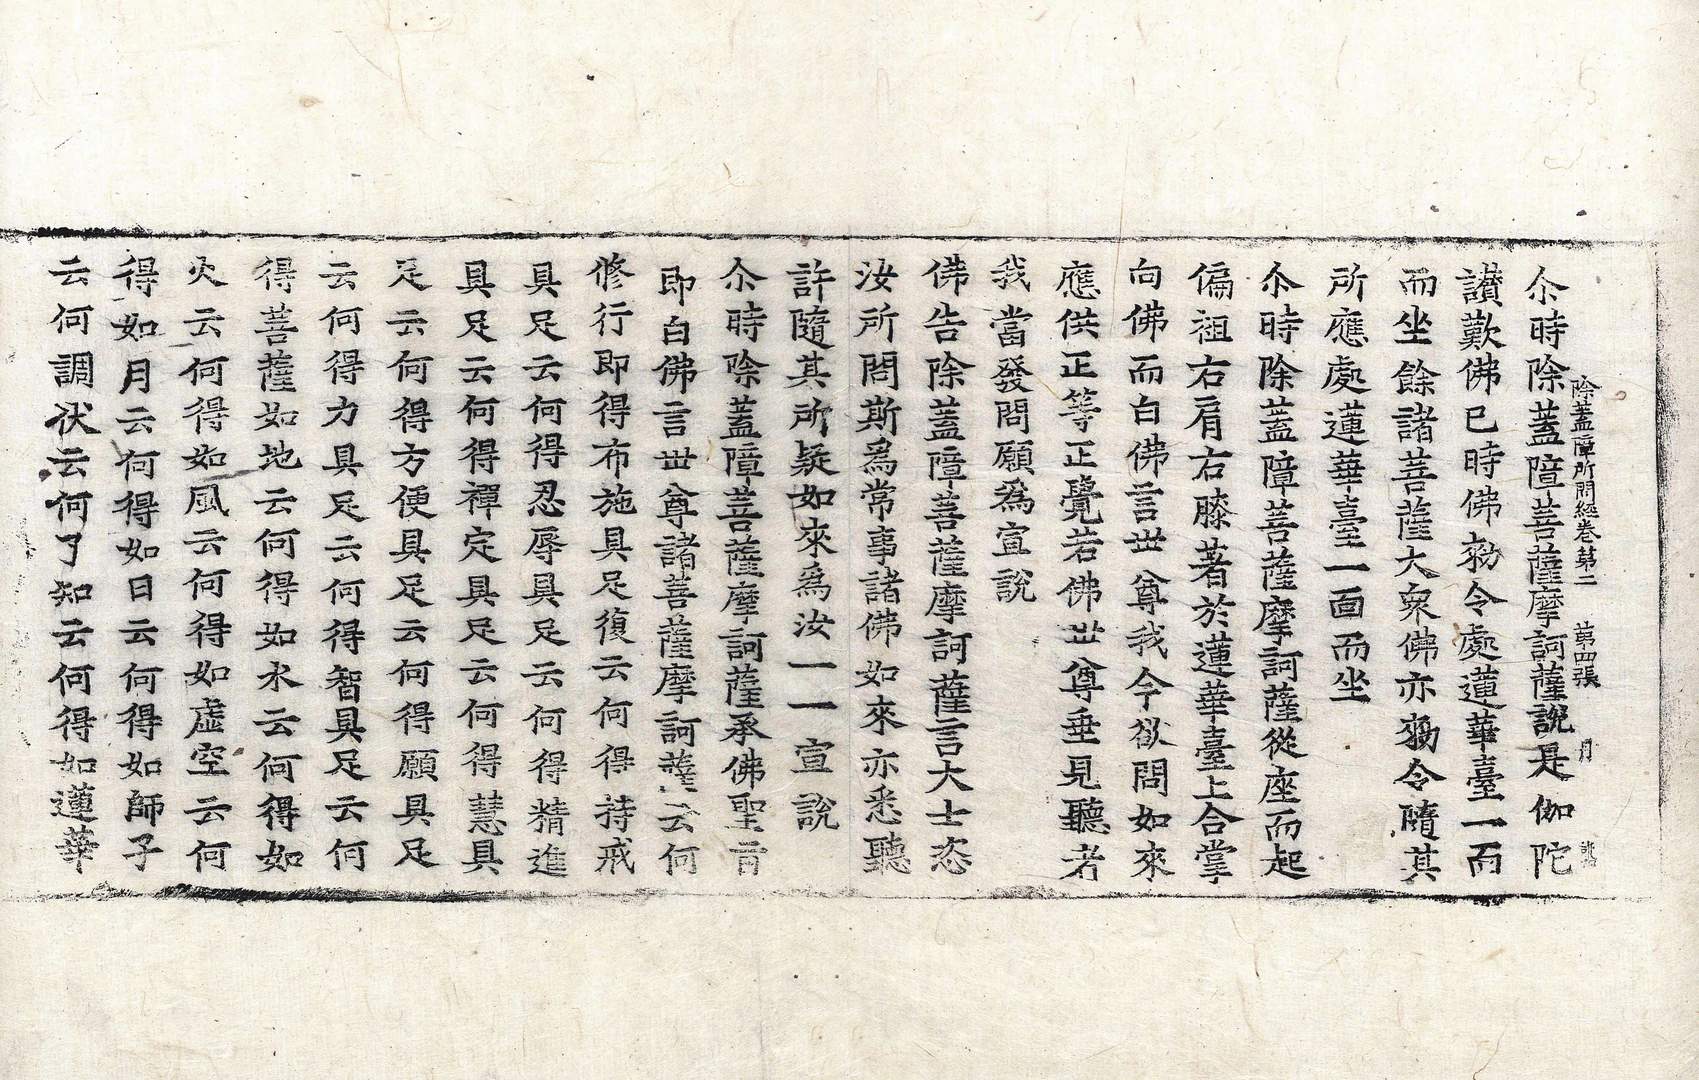 除蓋障所問經卷第二 第四張 月
尒時除蓋障菩薩摩訶薩說是伽陀
讃歎佛已時佛勑令處蓮華臺一面
而坐餘諸菩薩大衆佛亦勑令隨其
所應處蓮華臺一面而坐
尒時除蓋障菩薩摩訶薩從座而起
偏袒右肩右膝著於蓮華臺上合掌
向佛而白佛言世尊我今欲問如來
應供正等正覺若佛世尊垂見聽者
我當發問願爲宣說
佛告除蓋障菩薩摩訶薩言大士恣
汝所問斯爲常事諸佛如來亦悉聽
許隨其所疑如來爲汝一一宣說
尒時除蓋障菩薩摩訶薩承佛聖旨
即白佛言世尊諸菩薩摩訶薩云何
修行即得布施具足復云何得持戒
具足云何得忍辱具足云何得精進
具足云何得禪定具足云何得慧具
足云何得方便具足云何得願具足
云何得力具足云何得智具足云何
得菩薩如地云何得如水云何得如
火云何得如風云何得如虛空云何
得如月云何得如日云何得如師子
云何調伏云何了知云何得如蓮華